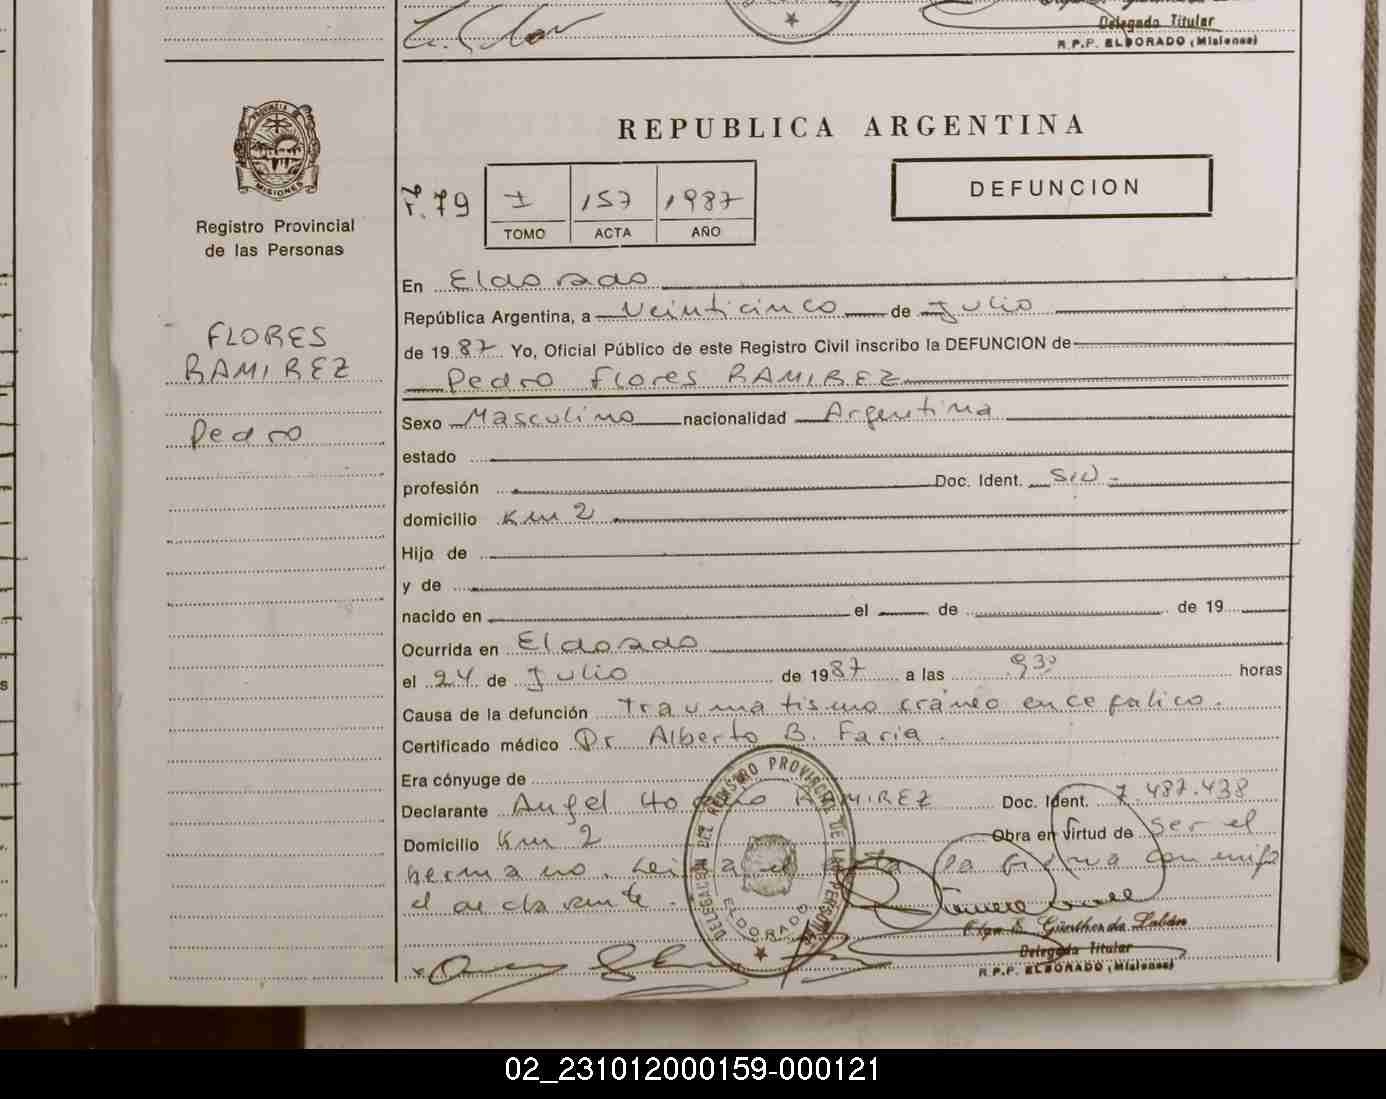 Delegada Titular
R.P.P. ELDORADO (Misiones)
PROVINCIA DE
MISIONES
Registro Provincial
de las Personas
FLORES
RAMIREZ
Pedro
REPUBLICA ARGENTINA
F. 79
I 157 1987
TOMO ACTA AÑO
DEFUNCION
En Eldorado
República Argentina, a Veinticinco de Julio
de 1987 Yo, Oficial Público de este Registro Civil inscribo la DEFUNCION de
Pedro Flores RAMIREZ
Sexo Masculino nacionalidad Argentina
estado
profesión Doc. Ident. S/N -
domicilio Km 2
Hijo de
y de
nacido en el de de 19
Ocurrida en Eldorado
el 24 de Julio de 1987 a las 9³⁰ horas
Causa de la defunción Traumatismo cráneo encefalico.
Certificado médico Dr Alberto B. Faria.
Era cónyuge de
Declarante Angel Horacio RAMIREZ Doc. Ident. 7.487.438
Domicilio Km 2 Obra en virtud de ser el
hermano. Leida el acta la firma conmigo
el declarante.
DELEGACION DEL REGISTRO PROVINCIAL DE LAS PERSONAS
ELDORADO
Olga E. Günther de Labán
Delegada Titular
R.P.P. ELDORADO (Misiones)
02_231012000159-000121